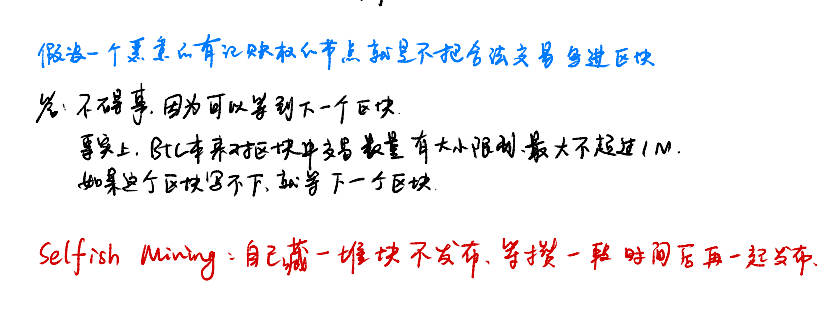 假设一个恶意的有记账权的节点就是不把合法交易写进区块
答：不碍事，因为可以等到下一个区块.
事实上，BTC本来对区块中交易数量有大小限制、最大不超过1M.
如果这个区块写不下、就等下一个区块.
Selfish Mining：自己藏一堆块不发布、等攒一段时间后再一起发布.